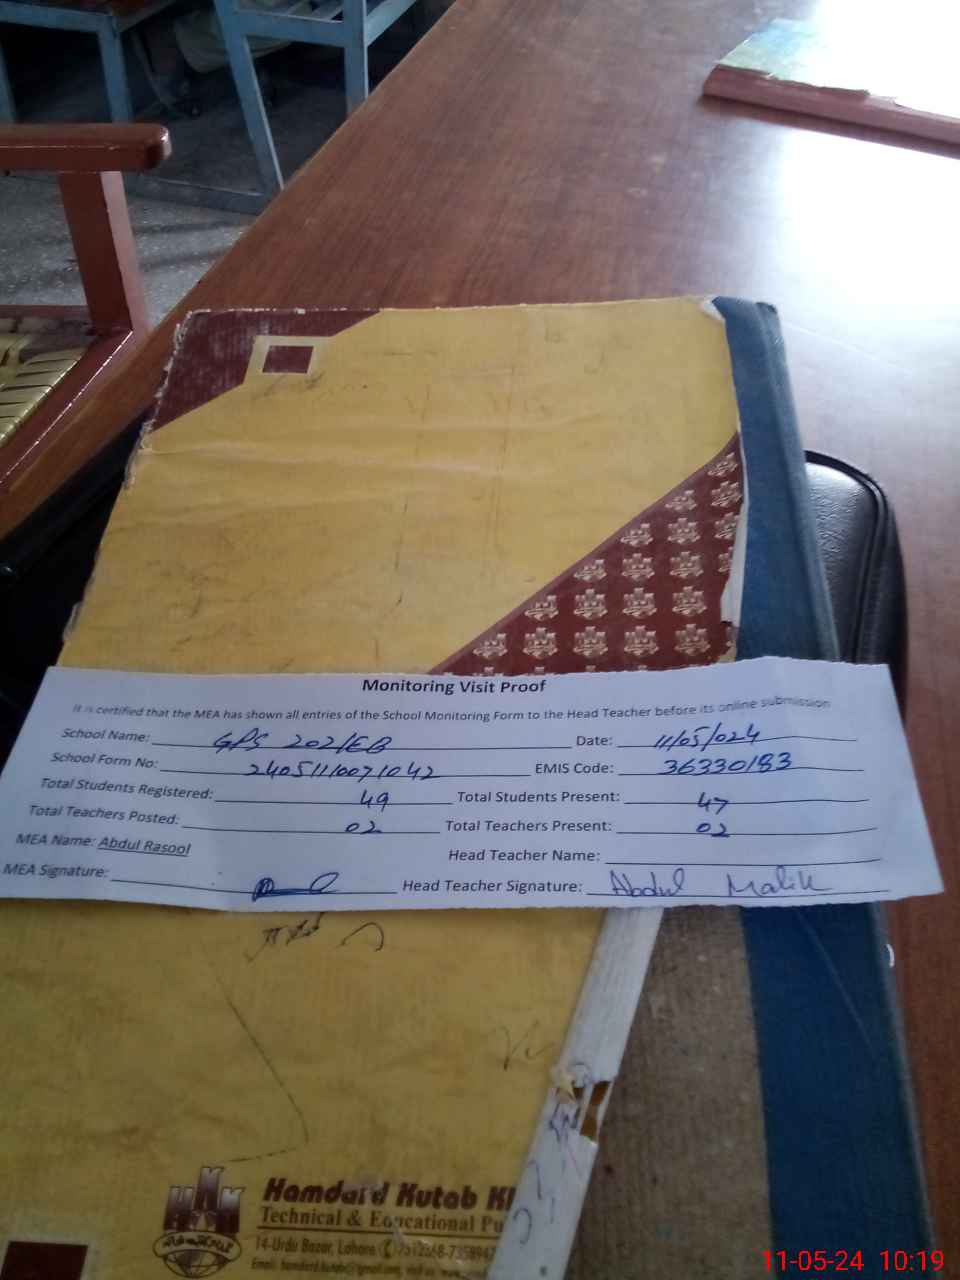 Monitoring Visit Proof
It is certified that the MEA has shown all entries of the School Monitoring Form to the Head Teacher before its online submission
School Name: GPS 202/EB Date: 11/05/024
School Form No: 24051110071042 EMIS Code: 36330183
Total Students Registered: 49 Total Students Present: 47
Total Teachers Posted: 02 Total Teachers Present: 02
MEA Name: Abdul Rasool Head Teacher Name:
MEA Signature: Head Teacher Signature: Abdul Malik
HKK
Hamdard Kutab
Technical & Educational
14-Urdu Bazar, Lahore
Email:
11-05-24 10:19